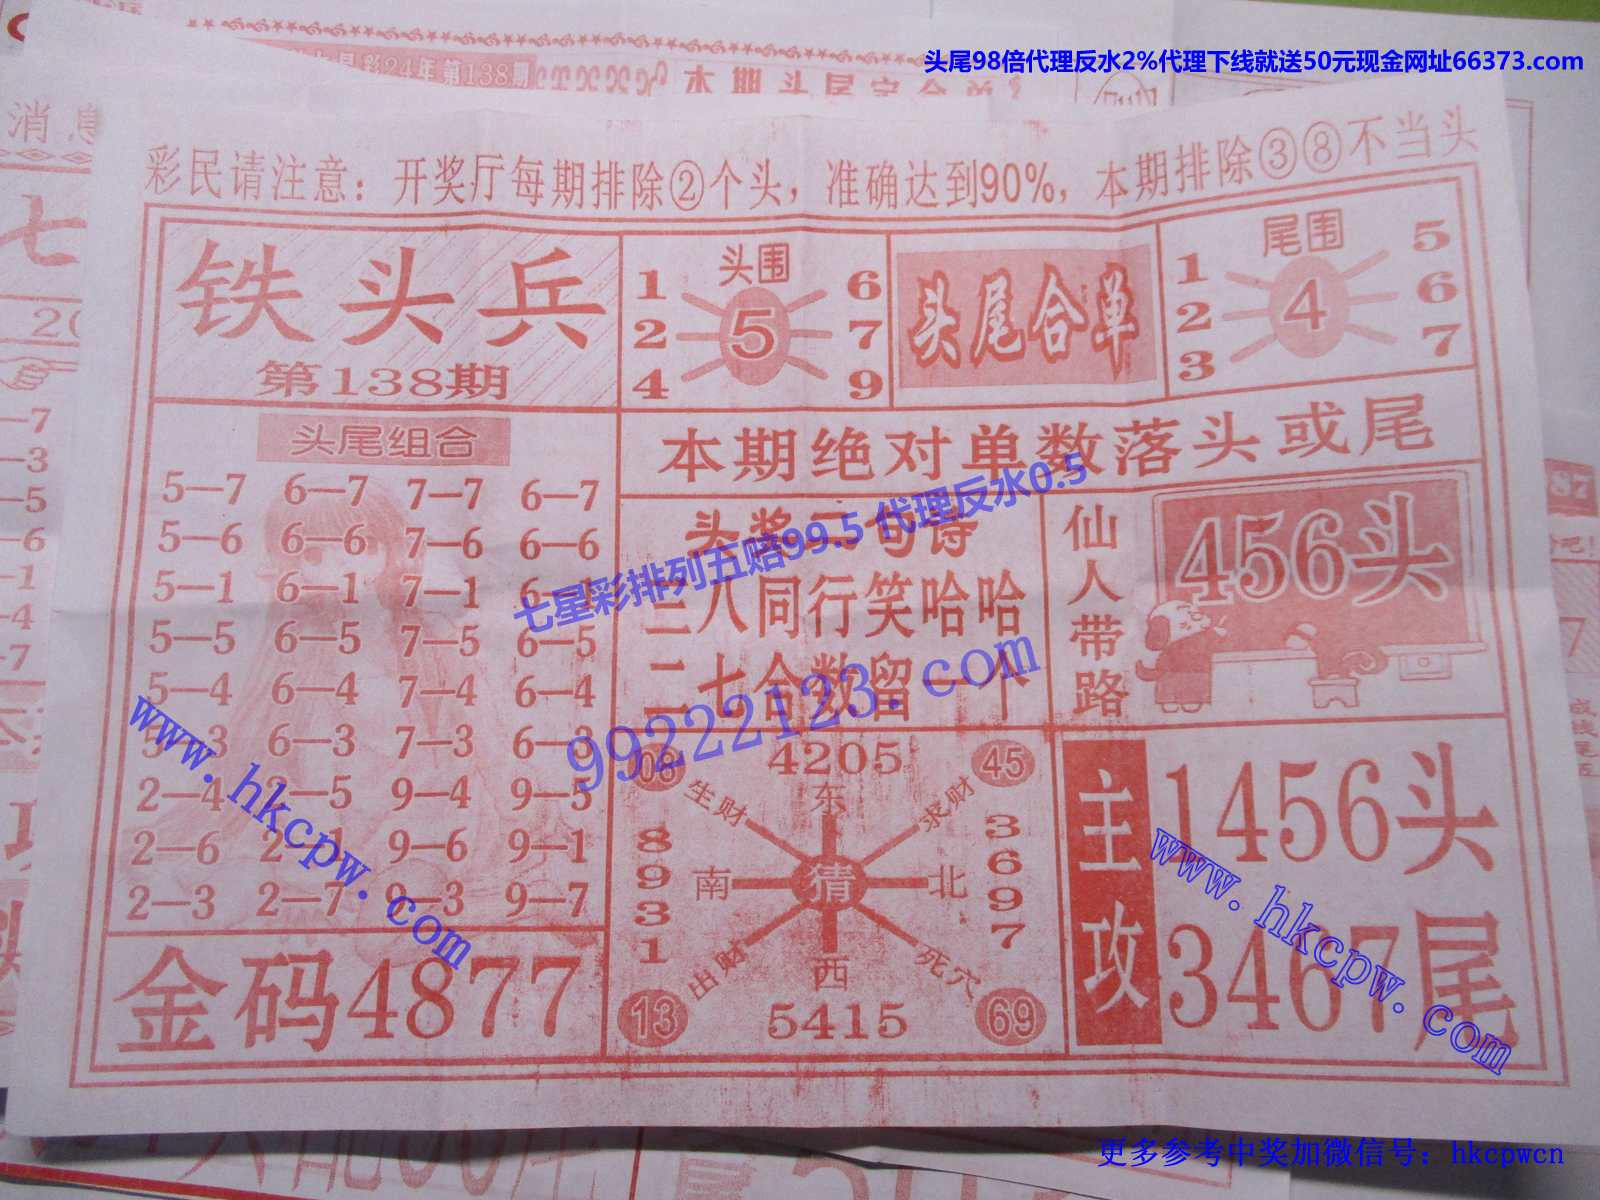 头尾98倍代理反水2%代理下线就送50元现金网址66373.com
彩24年第138期
本期头尾
消息
彩民请注意：开奖厅每期排除②个头，准确达到90%，本期排除③⑧不当头
铁头兵
第138期
头围
1 6
2 5 7
4 9
头尾合单
尾围
1 5
2 4 6
3 7
本期绝对单数落头或尾
头尾组合
5—7 6—7 7—7 6—7
5—6 6—6 7—6 6—6
5—1 6—1 7—1
5—5 6—5 7—5 6—5
5—4 6—4 7—4 6—4
6—3 7—3 6—3
2—4 9—4 9—5
2—6 9—6 9—1
2—3 2—7 9—3 9—7
金码4877
头奖二句诗
三八同行笑哈哈
二七合数留一个
七星彩排列五赔99.5 代理反水0.5
99222123.com
仙人带路
456头
08 4205 45
生财 东 求财
8931
南 猜 北
3697
出财 西 死穴
13 5415 69
主攻
1456头
3467尾
www.hkcpw.com
www.hkcpw.com
更多参考中奖加微信号：hkcpwcn